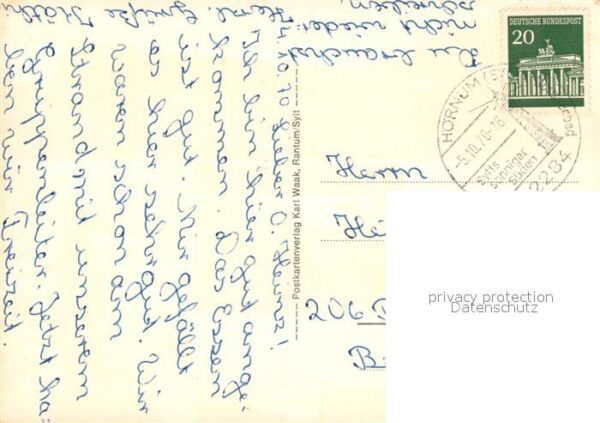 4.10.70 Lieber O. Heinz!
Ich bin hier gut ange-
kommen. Das Essen
ist gut. Mir gefällt
es hier sehr gut. Wir
waren schon am
Strand mit unserem
Gruppenleiter. Jetzt ha-
ben wir Freizeit.
Herzl. Grüße
Du brauchst
nicht wieder
schreiben.
Postkartenverlag Karl Waak, Rantum/Sylt
DEUTSCHE BUNDESPOST
20
HÖRNUM (SY
-5.10.70-16
Sylts
sonniger
Süden
2284
Herrn
206
privacy protection
Datenschutz